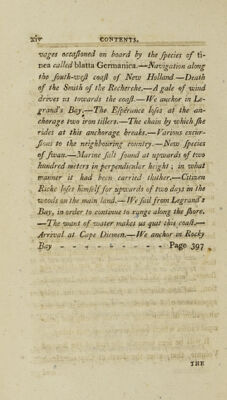 xiv CONTENTS.
vages occasioned on board by the species of ti-
nea called blatta Germanica.—Navigation along
the south-west coast of New Holland.—Death
of the Smith of the Recherche.—A gale of wind
drives us towards the coast.—We anchor in Le-
grand's Bay.—The Espérance loses at the an-
chorage two iron tillers.—The chain by which she
rides at this anchorage breaks.—Various excur-
sions to the neighbouring country.—New species
of swan.—Marine salt found at upwards of two
hundred meters in perpendicular height; in what
manner it had been carried thither.—Citizen
Riche loses himself for upwards of two days in the
woods on the main land.—We sail from Legrand's
Bay, in order to continue to range along the shore.
—The want of water makes us quit this coast.—
Arrival at Cape Diemen.—We anchor in Rocky
Bay - - - - - - - Page 397
THE